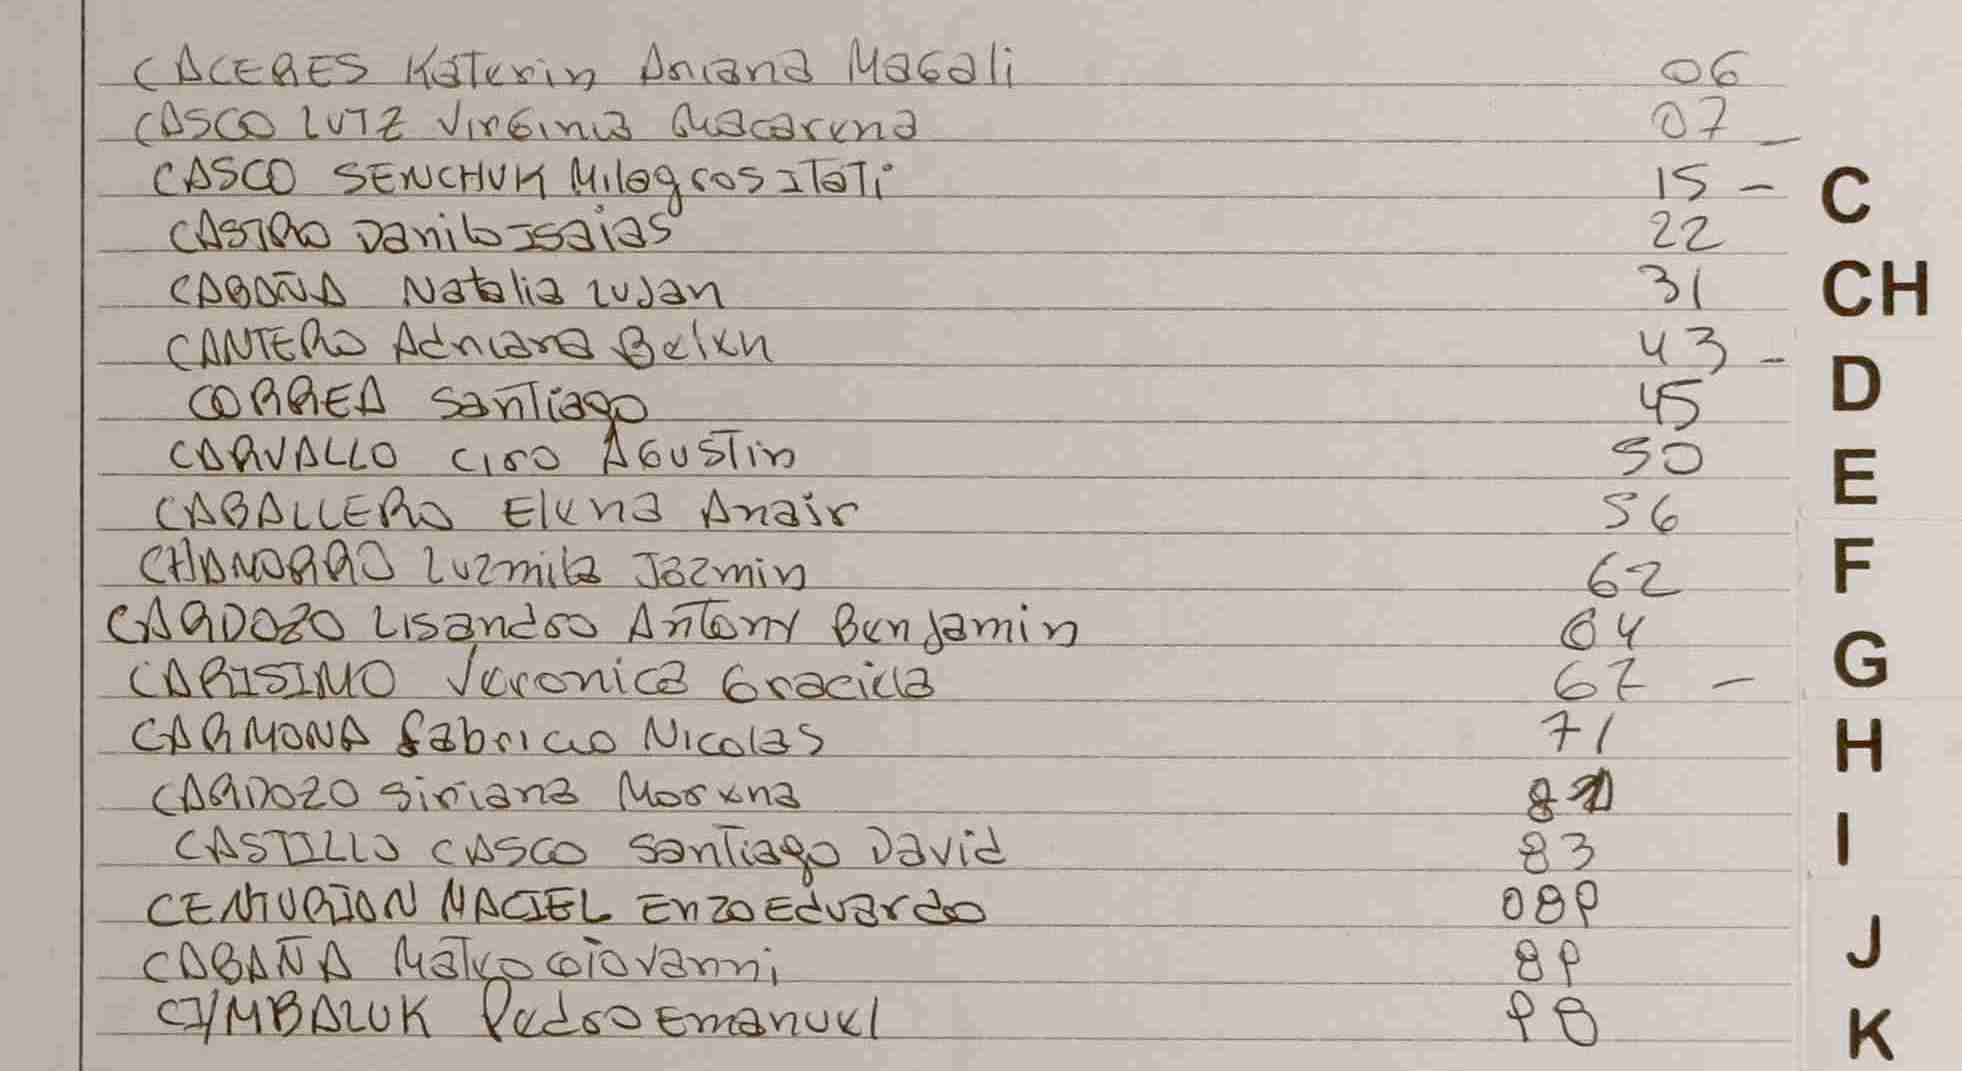 CACERES Katerin Ariana Magali 06
CASCO LUTZ Virginia Macarena 07
CASCO SENCHUK Milagros Itati 15 -
CASTRO Danilo Isaias 22
CABAÑA Natalia Lujan 31
CANTERO Adriana Belen 43 -
CORREA Santiago 45
CARVALLO Ciro Agustin 50
CABALLERO Elena Anair 56
CHAMORRO Luzmila Jazmin 62
CARDOZO Lisandro Antony Benjamin 64
CARISIMO Veronica Graciela 67 -
CARMONA Fabricio Nicolas 71
CARDOZO Siriana Morena
CASTILLO CASCO Santiago David 83
CENTURION MACIEL Enzo Eduardo 089
CABAÑA Mateo Giovanni 89
CZYMBALUK Pedro Emanuel 98
C
CH
D
E
F
G
H
I
J
K